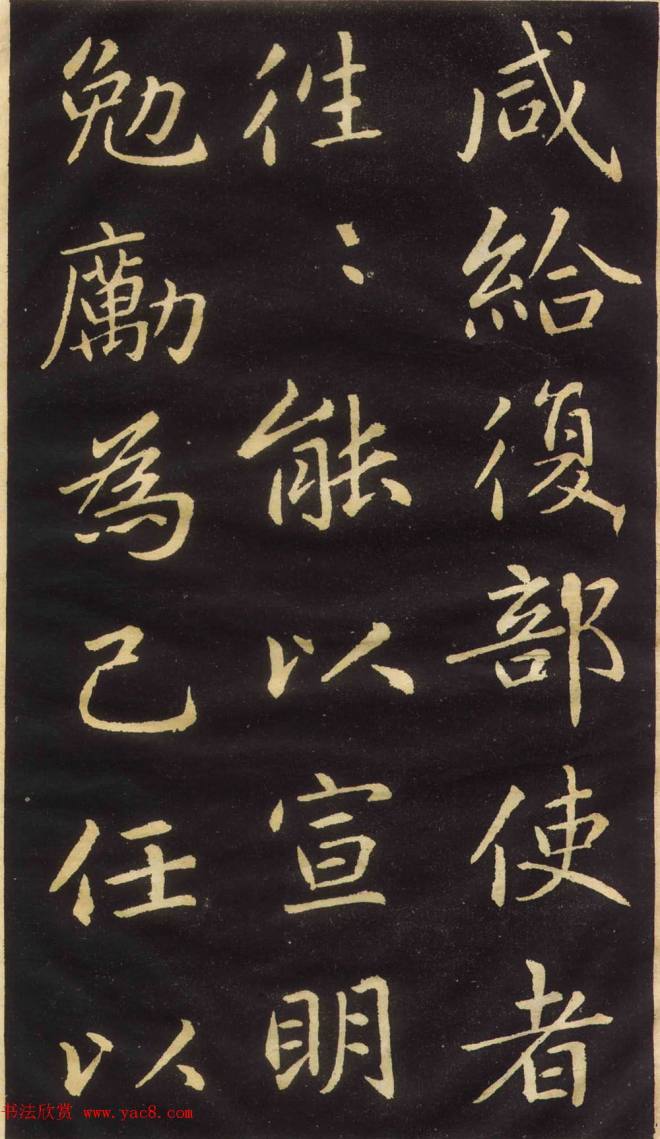 咸給復部使者
徃〻能以宣明
勉勵為己任以
书法欣赏 www.yac8.com